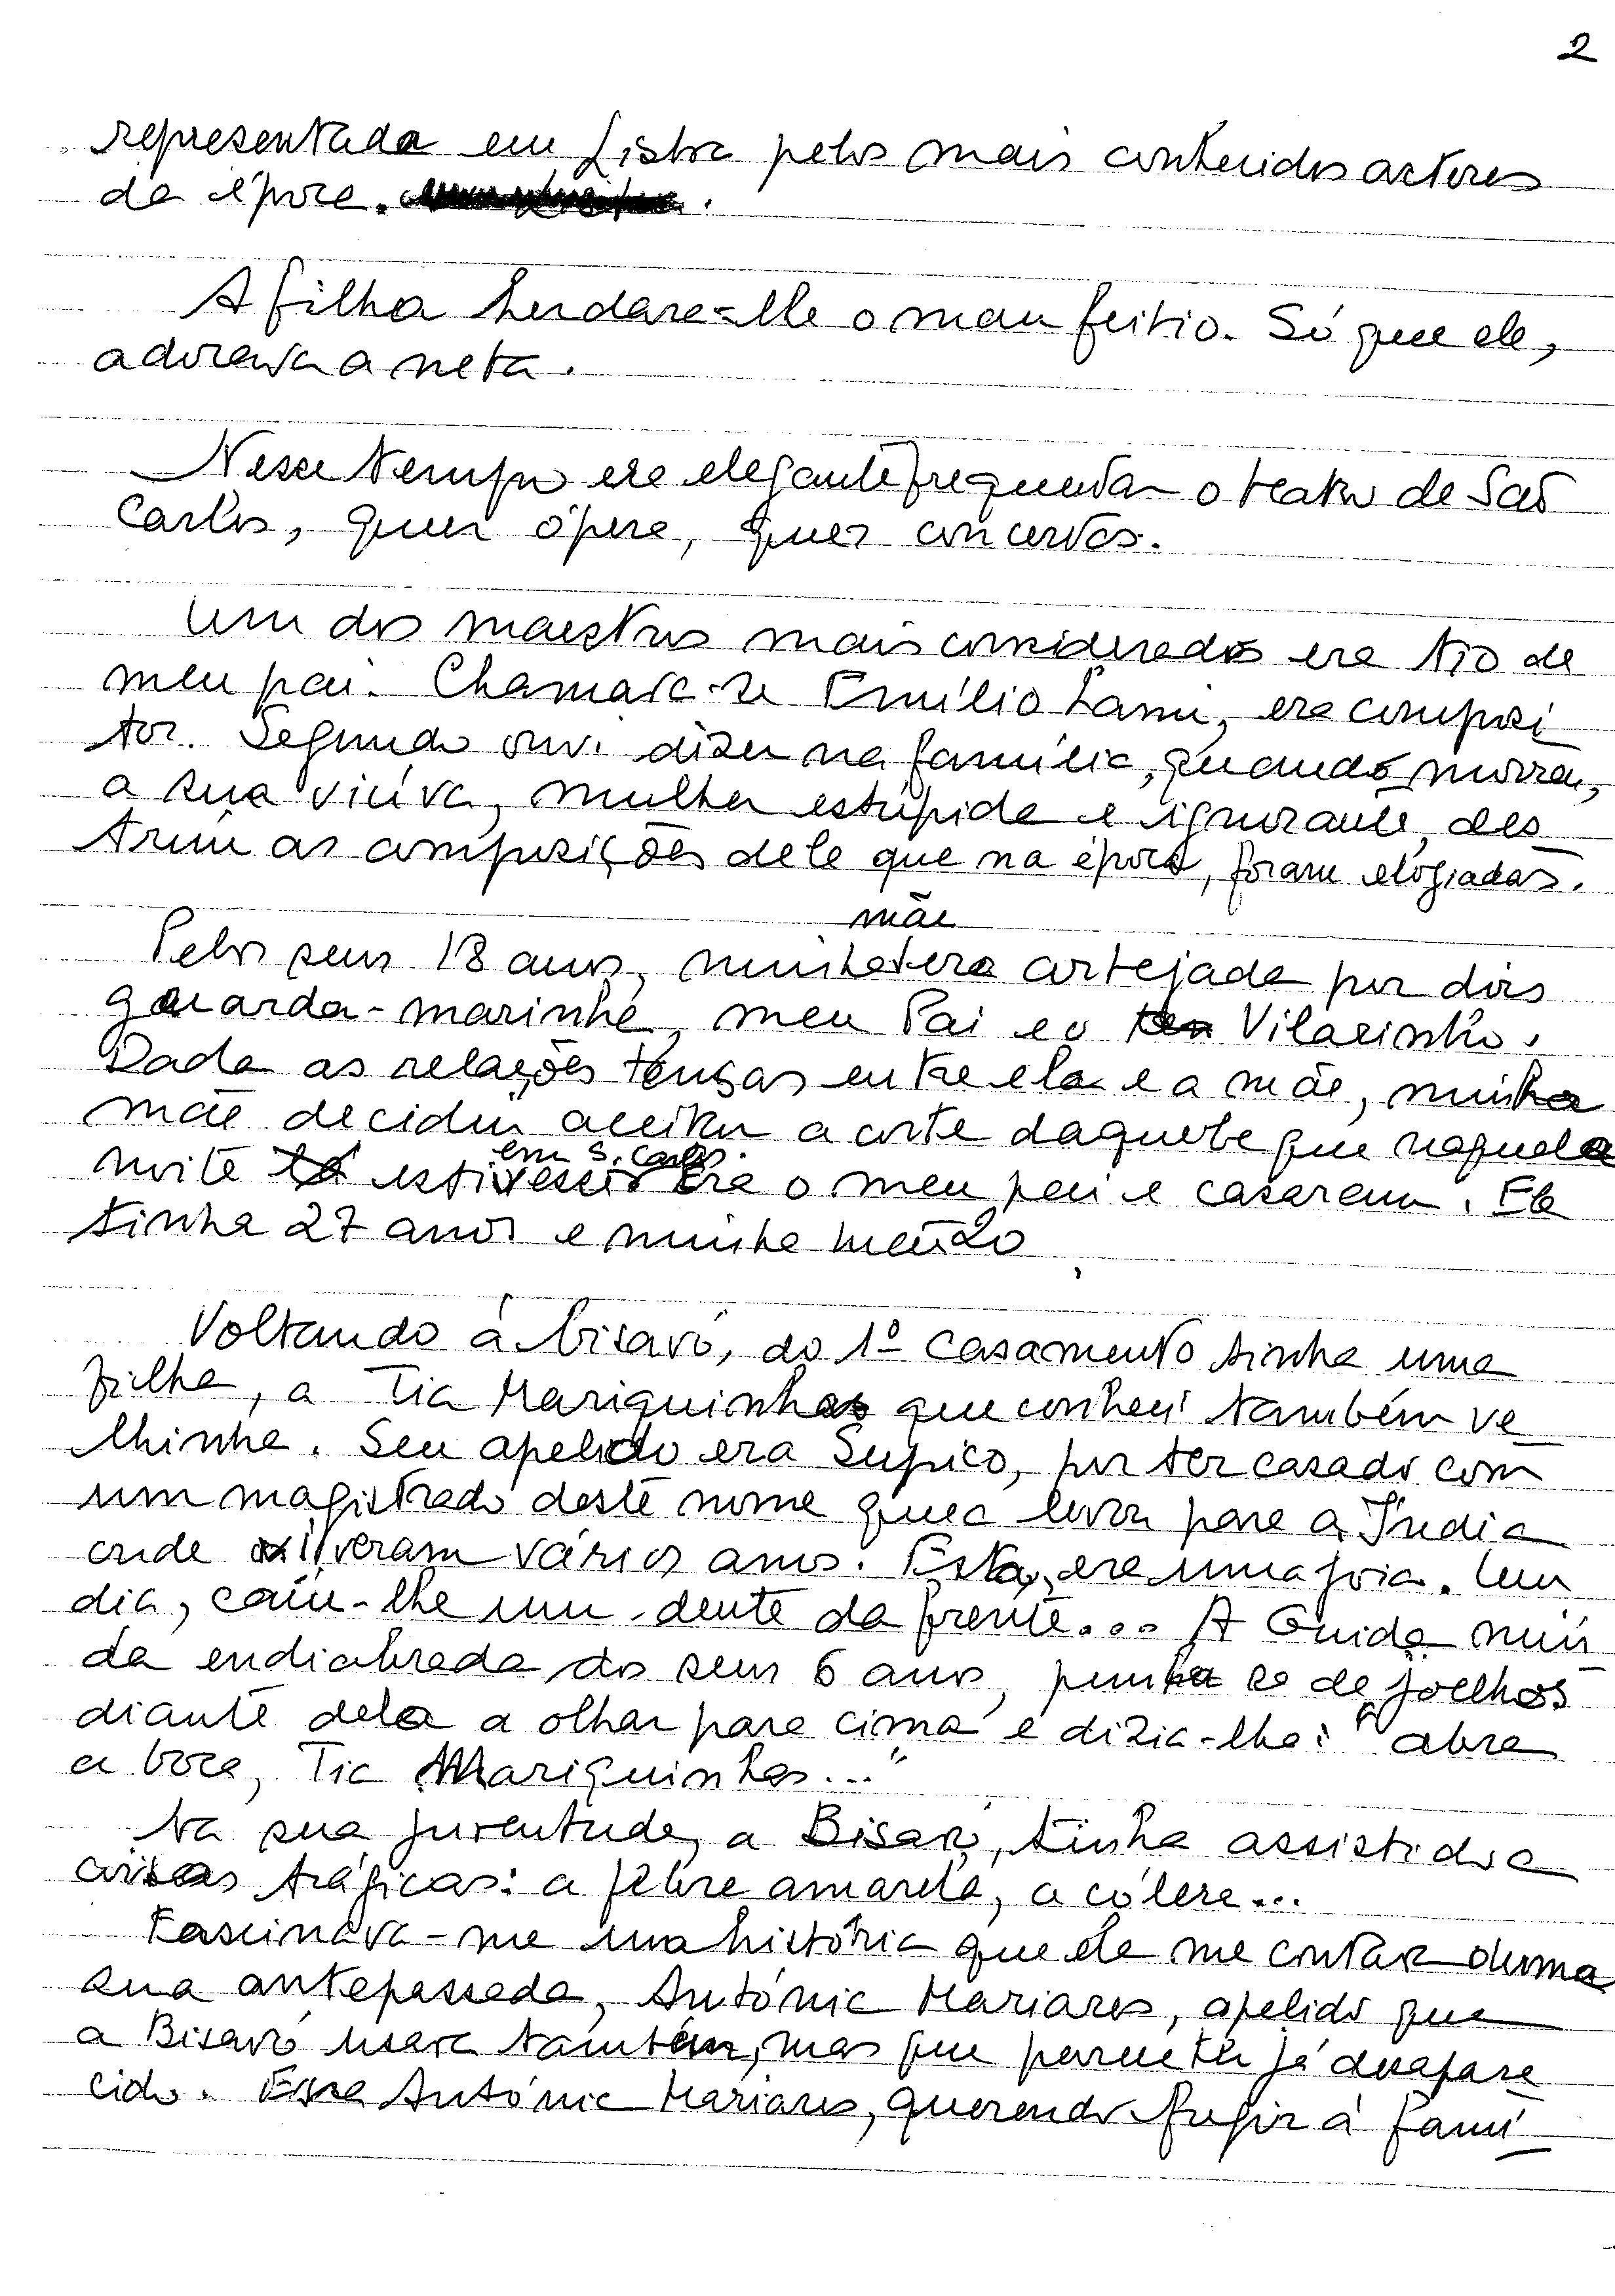 2
representada em Lisboa pelos mais conhecidos actores
da época.
A filha herdara-lhe o mau feitio. Só que ele,
adorava a neta.
Nesse tempo era elegante frequentar o teatro de São
Carlos, quer ópera, quer concertos.
Um dos maestros mais considerados era tio de
meu pai. Chamava-se Emílio Lami, era composi
tor. Segundo ouvi dizer na família, quando morreu,
a sua viúva, mulher estúpida e ignorante, des
truiu as composições dele que na época, foram elogiadas.
mãe
Pelos seus 18 anos, minha era cortejada por dois
guarda-marinha, meu Pai e o Vilarinho.
Dada as relações tensas entre ela e a mãe, minha
mãe decidiu aceitar a corte daquele que naquela
em S. Carlos.
noite estivesse Era o meu pai e casaram. Ele
tinha 27 anos e minha mãe 20
Voltando à bisavó, do 1º casamento tinha uma
filha, a Tia Mariquinhas que conheci também ve
lhinha. Seu apelido era Supico, por ter casado com
um magistrado deste nome que a levou para a Índia
onde viveram vários anos. Esta, era uma joia. Um
dia, caiu-lhe um dente da frente... A Guida miú
da endiabrada dos seus 6 anos, punha se de joelhos
diante dela a olhar para cima e dizia-lhe: "abra
a boca, Tia Mariquinhas..."
Na sua juventude, a Bisavó, tinha assistido a
coisas trágicas: a febre amarela, a cólera...
Fascinava-me uma história que ela me contava duma
sua antepassada, Antónia Mariares, apelido que
a Bisavó usava também, mas que parece ter já desapare
cido. Essa Antónia Mariares, querendo fugir à famí